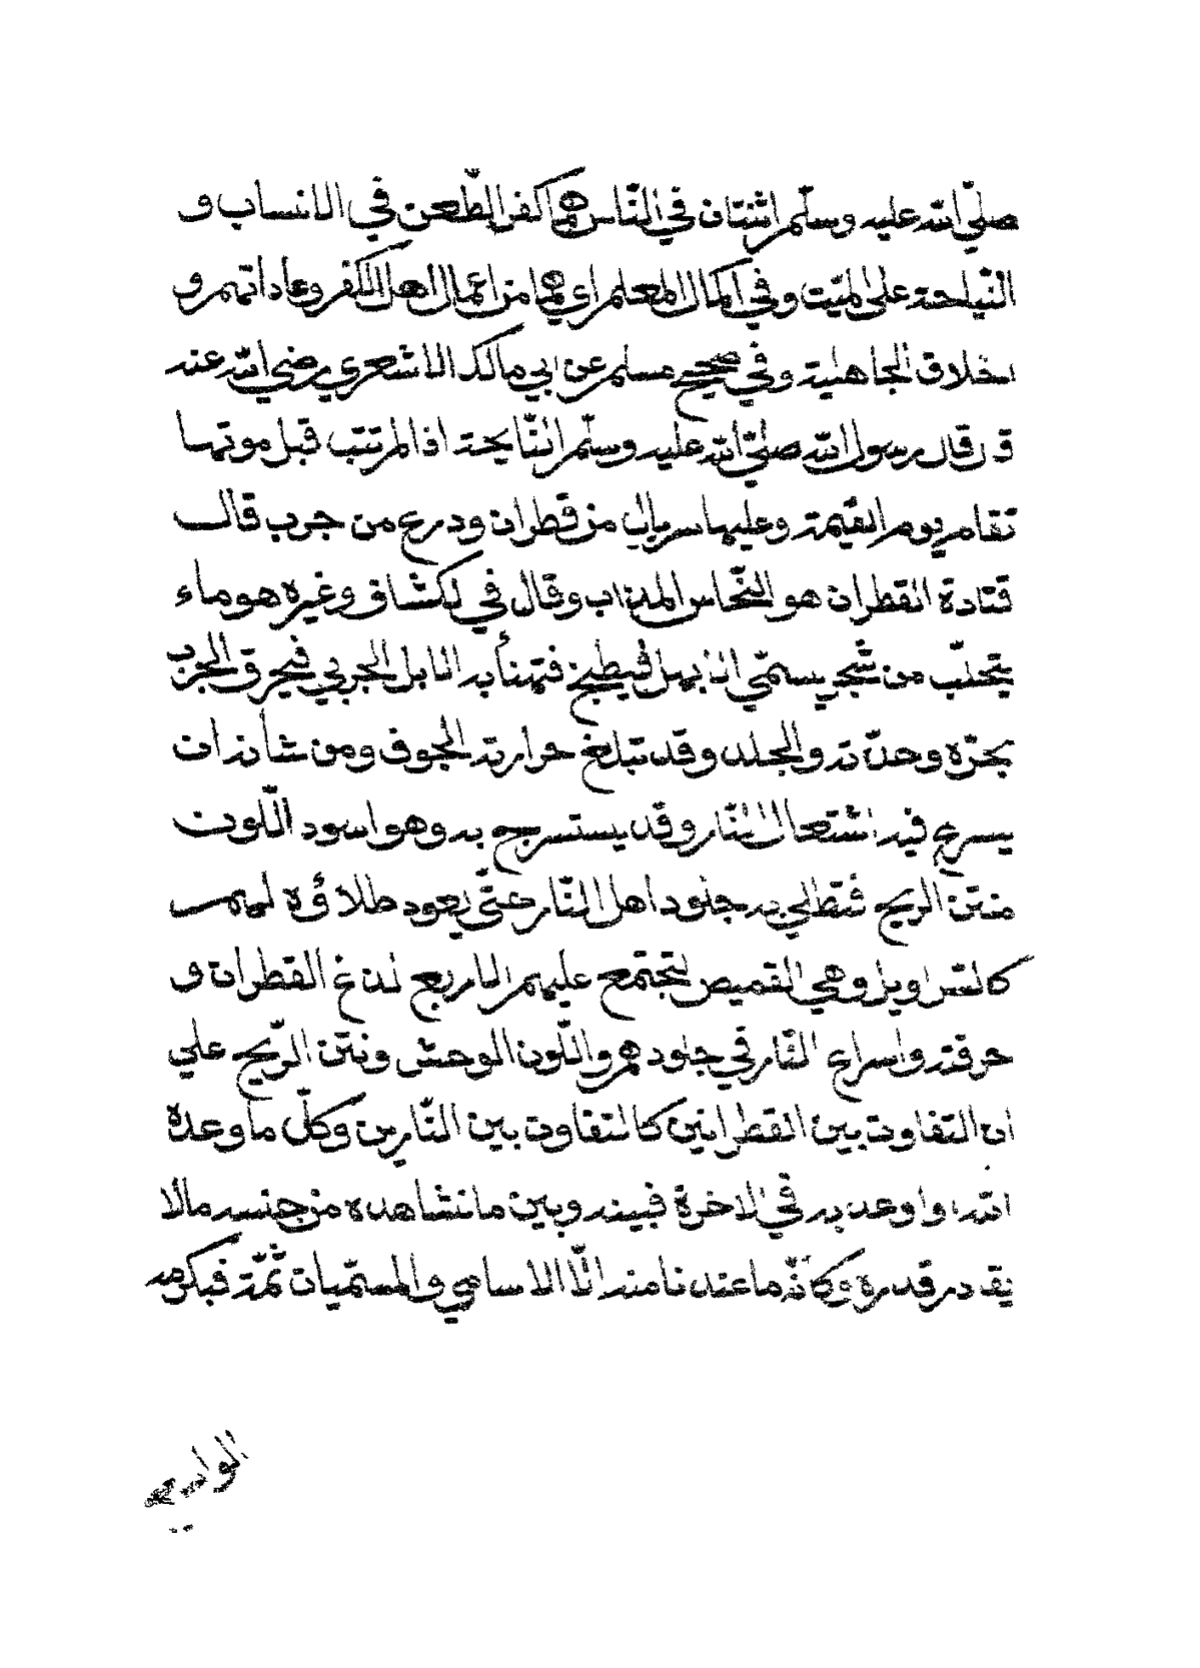 صلّي الله عليه وسلّم اثنتان في النّاس هما كفر الطّعن في الانساب و
النّياحة علي الميّت وفي اكمال المعلم اي هما من اعمال اهل الكفر وعاداتهم و
اخلاق الجاهلية وفي صحيح مسلم عن ابي مالك الاشعري رضي الله عنه
قال قال رسول الله صلّي الله عليه وسلّم النّايحة اذا لم تتب قبل موتها
تقام يوم القيمة وعليها سربال من قطران ودرع من جرب قال
قتادة القطران هو النّحاس المذاب وقال في الكشاف وغيره هو ماء
يتحلّب من شجر يسمّي الابهل فيطبخ فتهنأ به الابل الجربي فيحرق الجرب
بحرّه وحدّته والجلد وقد تبلغ حرارته الجوف ومن شأنه ان
يسرع فيه اشتعال النّار وقد يستسرج به وهو اسود اللّون
منتن الريح فتطلي به جلود اهل النّار حتّي يعود طلاؤه لهم
كالسّراويل وهي القميص لتجتمع عليهم الاربع لدغ القطران و
حرقته واسراع النّار في جلودهم واللّون الوحش ونتن الرّيح علي
ان التفاوت بين القطرانين كالتفاوت بين النّارين وكلّ ما وعده
الله او اوعد به في الاخرة فبينه وبين ما نشاهده من جنسه ما لا
يقادر قدره وكأنّه ما عندنا منه الّا الاسامي والمسمّيات ثمّة فبكرمه
الواسع